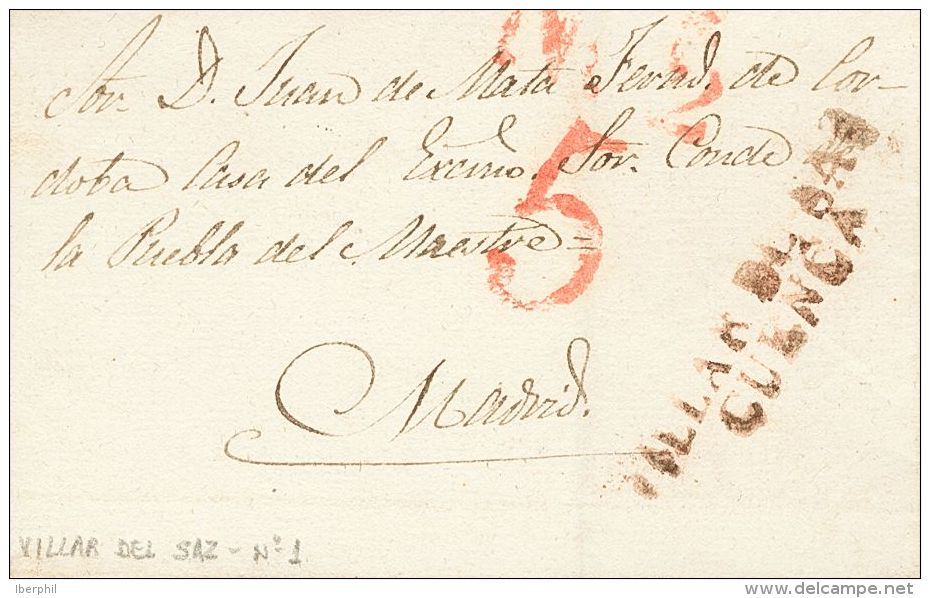 Sor. D. Juan de Mata Fernd. de Cor-
doba Casa del Excmo. Sor. Conde de
la Puebla del Maestre =
Madrid.
5
VILLAR DEL SAZ
CUENCA
VILLAR DEL SAZ - Nº 1
Iberphil
www.delcampe.net